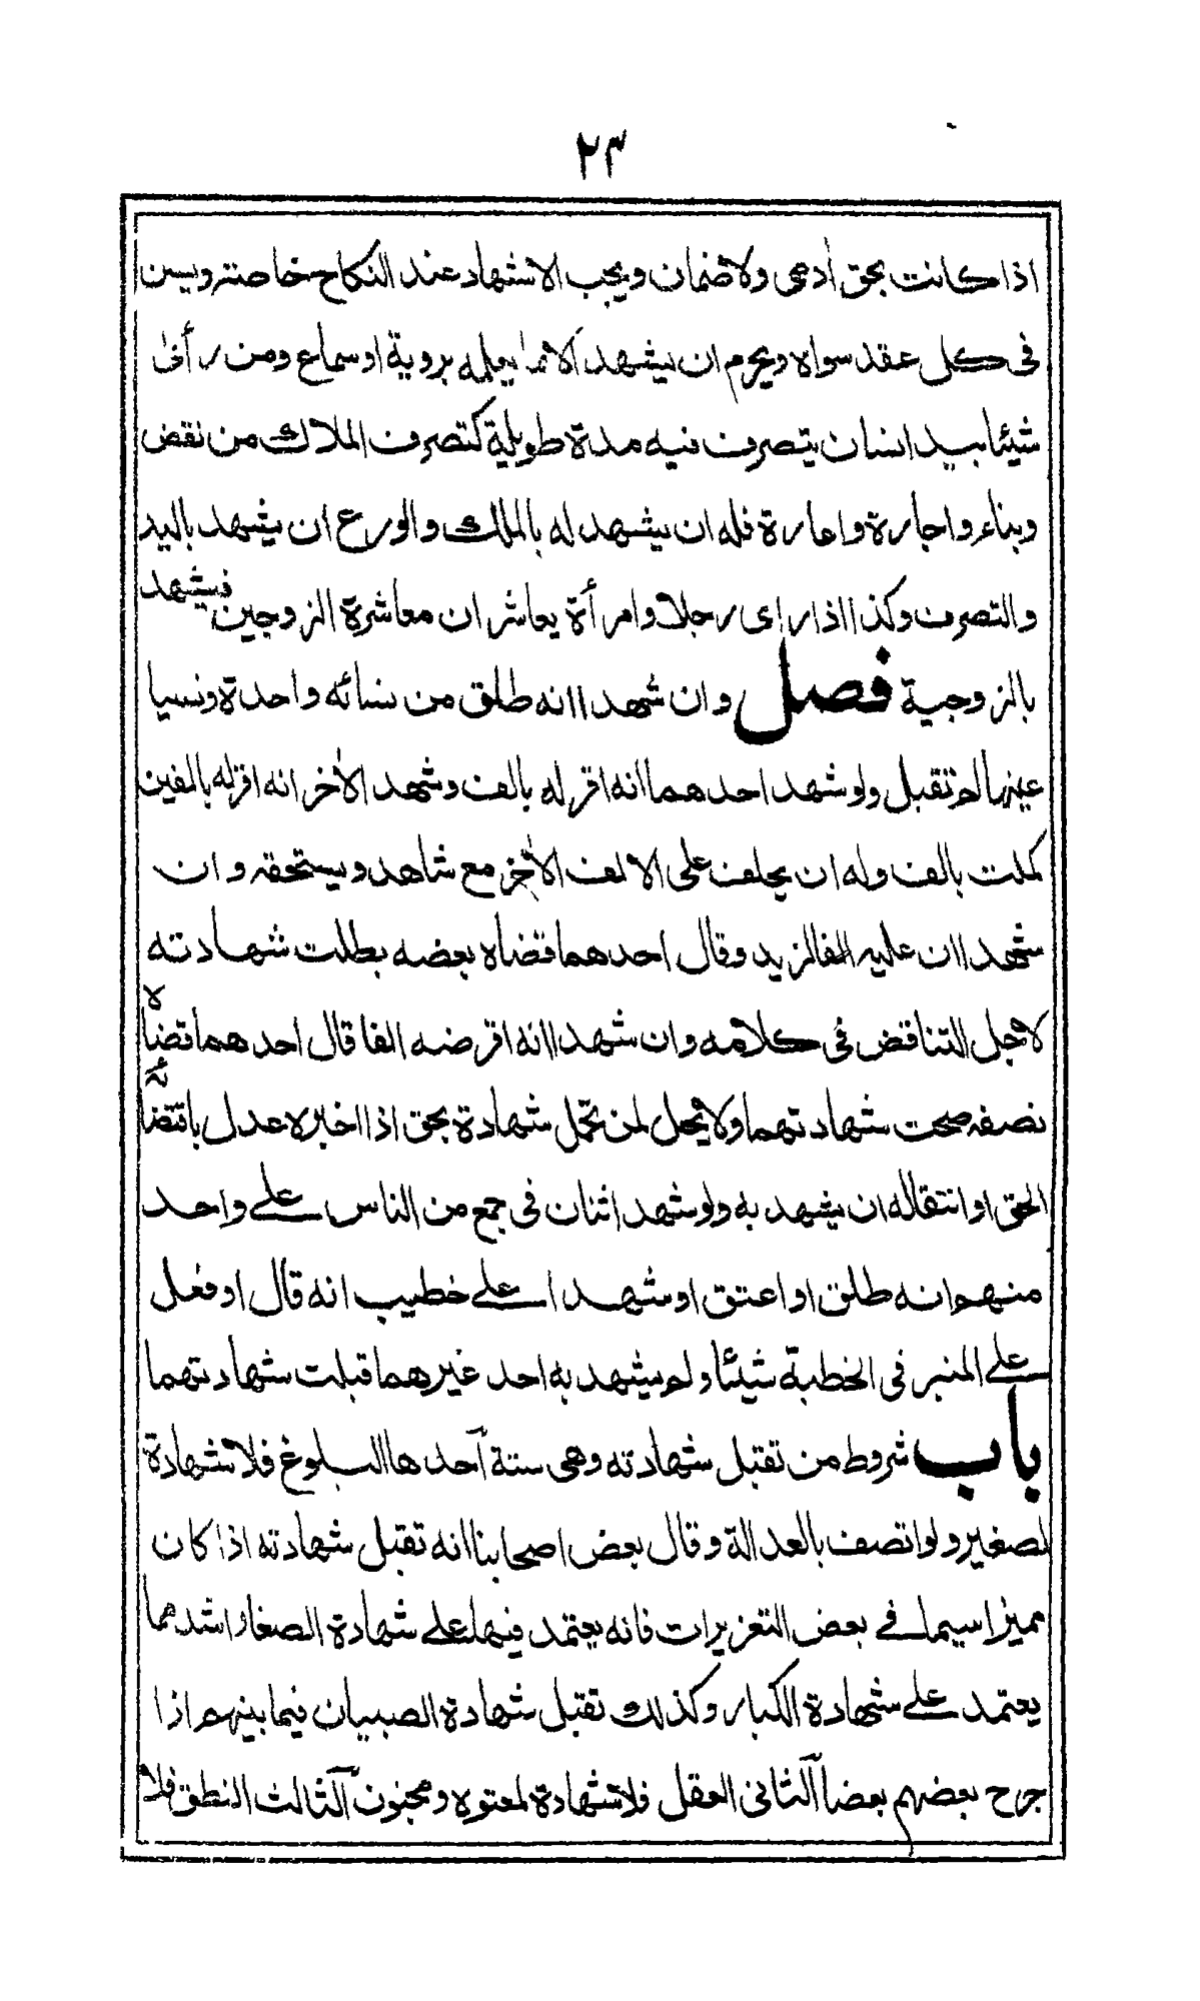 ٢٣
اذا كانت بحق أدمى ولا ضمان ويجب الاشهاد عند النكاح خاصة ويسن
فى كل عقد سواه ويحرم ان يشهد الا بما يعلمه بروية او سماع ومن رأى
شيئا بيد انسان يتصرف فيه مدة طويلة كتصرف الملاك من نقض
وبناء واجارة واعارة فله ان يشهد له بالملك والورع ان يشهد باليد
والتصرف وكذا اذا راى رجلا وامرأة يعاشران معاشرة الزوجين فيشهد
بالزوجية فصل وان شهدا انه طلق من نسائه واحدة ونسيا
عينها لم تقبل ولو شهد احدهما انه اقر له بالف وشهد الأخر انه اقر له بالفين
كملت بالف وله ان يحلف على الالف الأخر مع شاهد ويستحقه وان
شهدا ان عليه الفا لزيد وقال احدهما قضاه بعضه بطلت شهادته
لاجل التناقض فى كلامه وان شهدا انه اقرضه الفا قال احدهما قضاه
نصفه صحت شهادتهما ولا يحل لمن تحمل شهادة بحق اذا اخبره عدل باقتضائه
الحق او انتقاله ان يشهد به ولو شهد اثنان فى جمع من الناس على واحد
منهم انه طلق او اعتق او شهدا على خطيب انه قال او فعل
على المنبر فى الخطبة شيئا ولم يشهد به احد غيرهما قبلت شهادتهما
باب شروط من تقبل شهادته وهى ستة آحدها البلوغ فلا شهادة
لصغير ولو اتصف بالعدالة وقال بعض اصحابنا انه تقبل شهادته اذا كان
مميزا سيما فى بعض التعزيرات فانه يعتمد فيها على شهادة الصغار اشد مما
يعتمد على شهادة الكبار وكذلك تقبل شهادة الصبيان فيما بينهم اذا
جرح بعضهم بعضا آلثانى العقل فلا شهادة لمعتوه ومجنون آلثالث النطق فلا